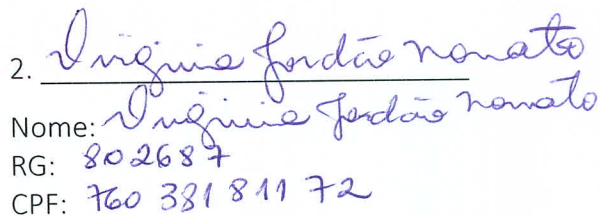 2. Virginia Jordão Nonato
Nome: Virginia Jordão Nonato
RG: 802687
CPF: 760 381 811 72